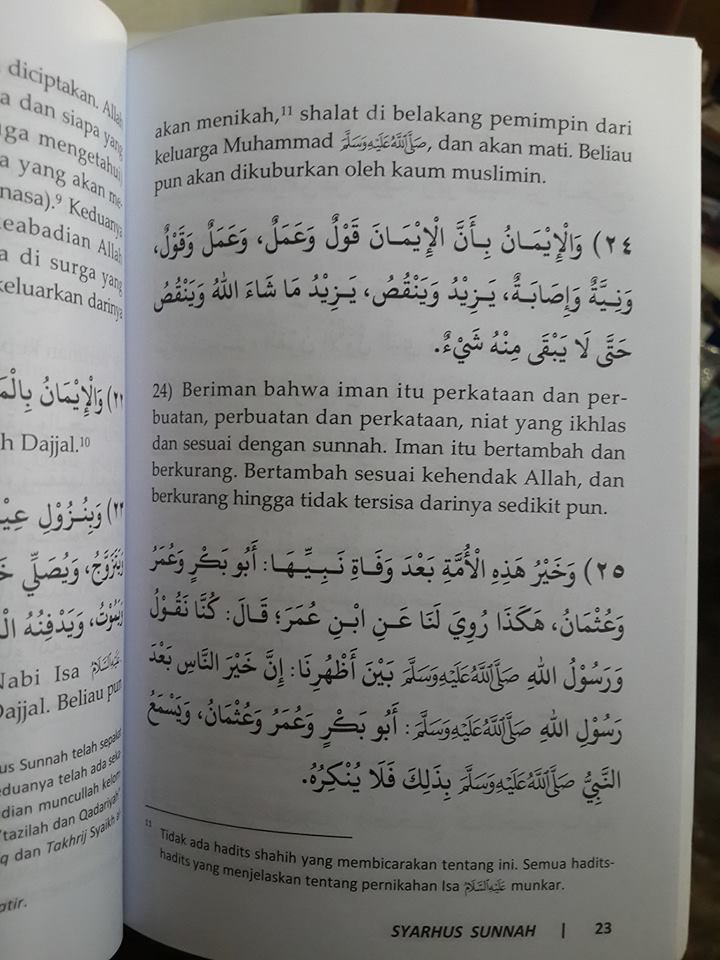 diciptakan. Allah
a dan siapa yang
ga mengetahui
a yang akan me-
nasa).⁹ Keduanya
keabadian Allah
a di surga yang
keluarkan darinya
٢٢) وَالْإِيْمَانُ بِالْمَ
h Dajjal.¹⁰
٢٣) وَبِنُزُوْلِ عِيْ
وَيَتَزَوَّجُ، وَيُصَلِّي خَ
وَيَمُوْتُ، وَيَدْفِنُهُ الْ
Nabi Isa عَلَيْهِ السَّلَامُ
Dajjal. Beliau pun
us Sunnah telah sepakat
eduanya telah ada seka-
dian muncullah kelom
'tazilah dan Qadariyah"
q dan Takhrij Syaikh a
atir.
akan menikah,¹¹ shalat di belakang pemimpin dari
keluarga Muhammad صَلَّى اللَّهُ عَلَيْهِ وَسَلَّمَ, dan akan mati. Beliau
pun akan dikuburkan oleh kaum muslimin.
٢٤) وَالْإِيْمَانُ بِأَنَّ الْإِيْمَانَ قَوْلٌ وَعَمَلٌ، وَعَمَلٌ وَقَوْلٌ،
وَنِيَّةٌ وَإِصَابَةٌ، يَزِيْدُ وَيَنْقُصُ، يَزِيْدُ مَا شَاءَ اللهُ وَيَنْقُصُ
حَتَّى لَا يَبْقَى مِنْهُ شَيْءٌ.
24) Beriman bahwa iman itu perkataan dan per-
buatan, perbuatan dan perkataan, niat yang ikhlas
dan sesuai dengan sunnah. Iman itu bertambah dan
berkurang. Bertambah sesuai kehendak Allah, dan
berkurang hingga tidak tersisa darinya sedikit pun.
٢٥) وَخَيْرُ هَذِهِ الْأُمَّةِ بَعْدَ وَفَاةِ نَبِيِّهَا: أَبُو بَكْرٍ وَعُمَرُ
وَعُثْمَانُ، هَكَذَا رُوِيَ لَنَا عَنِ ابْنِ عُمَرَ؛ قَالَ: كُنَّا نَقُوْلُ
وَرَسُوْلُ اللهِ صَلَّى اللَّهُ عَلَيْهِ وَسَلَّمَ بَيْنَ أَظْهُرِنَا: إِنَّ خَيْرَ النَّاسِ بَعْدَ
رَسُوْلِ اللهِ صَلَّى اللَّهُ عَلَيْهِ وَسَلَّمَ: أَبُو بَكْرٍ وَعُمَرُ وَعُثْمَانُ، وَيَسْمَعُ
النَّبِيُّ صَلَّى اللَّهُ عَلَيْهِ وَسَلَّمَ بِذَلِكَ فَلَا يُنْكِرُهُ.
¹¹ Tidak ada hadits shahih yang membicarakan tentang ini. Semua hadits-
hadits yang menjelaskan tentang pernikahan Isa عَلَيْهِ السَّلَامُ munkar.
SYARHUS SUNNAH | 23